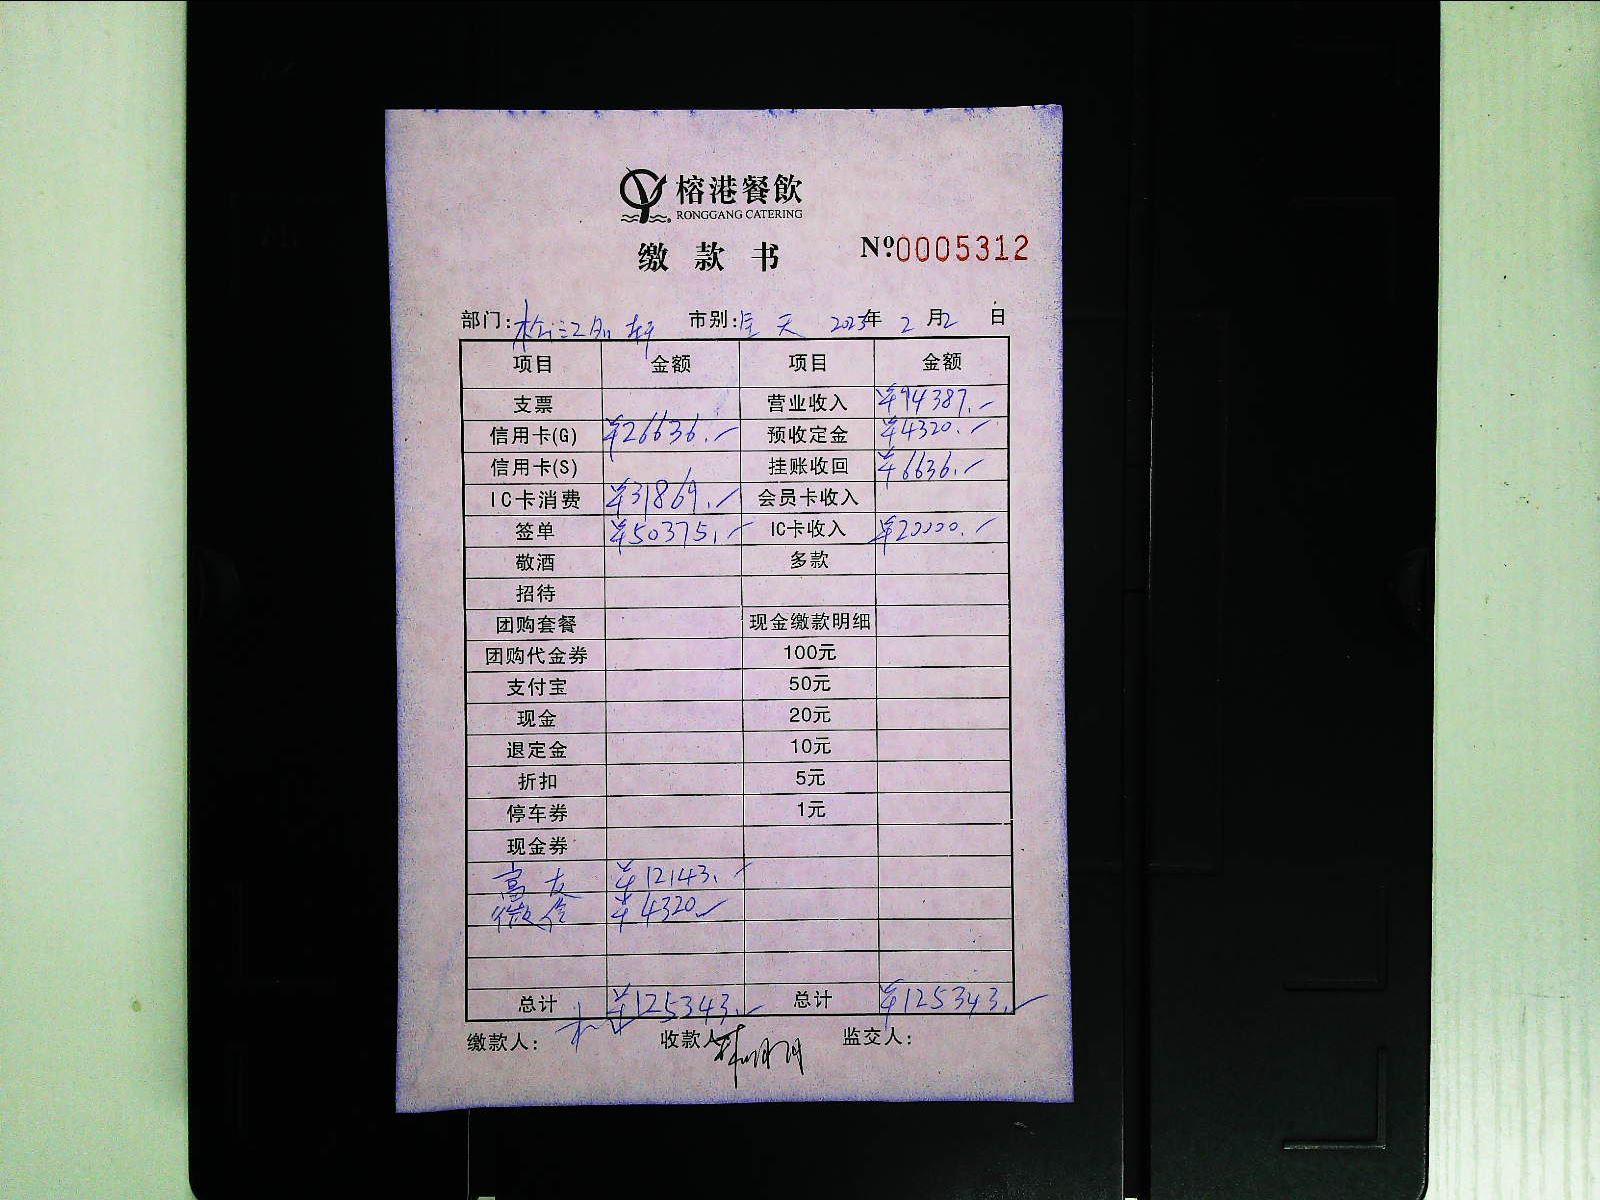 榕港餐飲
RONGGANG CATERING
缴款书
Nº:0005312
部门: 市别: 全天 2025年 2月2日
项目 金额 项目 金额
支票 营业收入 ¥94387.-
信用卡(G) ¥26636.- 预收定金 ¥4320.-
信用卡(S) 挂账收回 ¥6636.-
IC卡消费 ¥31869.- 会员卡收入
签单 ¥50375.- IC卡收入 ¥20000.-
敬酒 多款
招待
团购套餐 现金缴款明细
团购代金券 100元
支付宝 50元
现金 20元
退定金 10元
折扣 5元
停车券 1元
现金券
¥12143.-
微信 ¥4320.-
总计 ¥125343.- 总计 ¥125343.-
缴款人: 收款人 监交人: